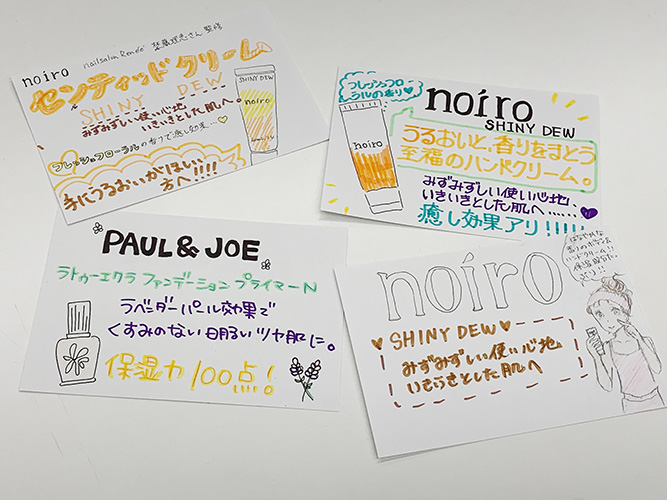 noiro nailsalon Renée
さん監修
センティッドクリーム
SHINY DEW
みずみずしい使い心地
いきいきとした肌へ。
フレッシュフローラルの香りで癒し効果…♡
手にうるおいがほしい
方へ!!!!
SHINY DEW
noiro
フレッシュフロー
ラルの香り♡
noiro
SHINY DEW
うるおいと、香りをまとう
至福のハンドクリーム。
みずみずしい使い心地、
いきいきとした肌へ……♥
癒し効果アリ!!!!!
noiro
PAUL & JOE
ラトゥーエクラ ファンデーション プライマーN
ラベンダーパール効果で
くすみのない明るいツヤ肌に。
保湿力100点!
noiro
♥SHINY DEW♥
みずみずしい使い心地
いきいきとした肌へ
はなやかな
香りの
ハンドクリーム!!
保湿成分